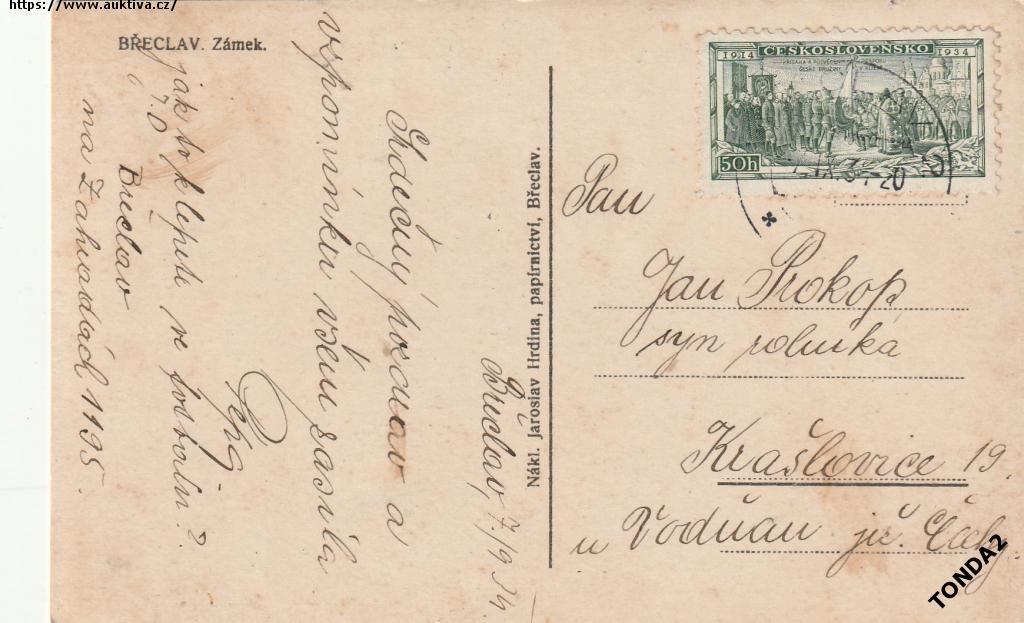 https://www.auktiva.cz/
BŘECLAV. Zámek.
Břeclav, 7/9 34
Srdečný pozdrav a
vzpomínku všem zasílá
Pepa
jak to klepete ve fotbalu?
Břeclav
na Zahradách 1195.
Nákl. Jaroslav Hrdina, papírnictví, Břeclav.
1914 ČESKOSLOVENSKO 1934
50h
Pan
Jan Prokop,
syn rolníka
Krašlovice 19.
u Vodňan již. Čechy
TONDA2